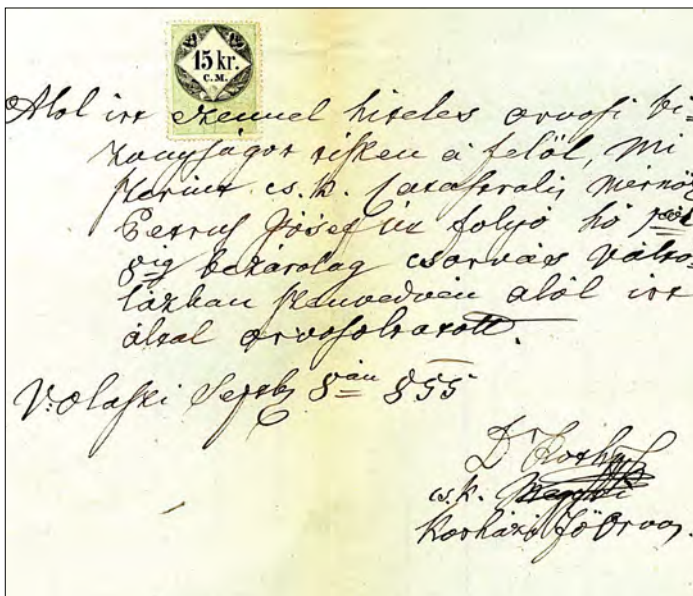 15 kr.
C.M.
Alol irt ezennel hiteles orvosi bi=
zonyságot tiszen a felöl, mi
szerint cs. k. Catastralis mérnök
Petrus Jósef úr folyó hó
8ig bezárolag csorvásválto
lázban szenvedvén alól irt
által orvosoltatott.
V:Olaszi Septb 8án 855
Dr
cs. k.
Korházi FöOrvos.